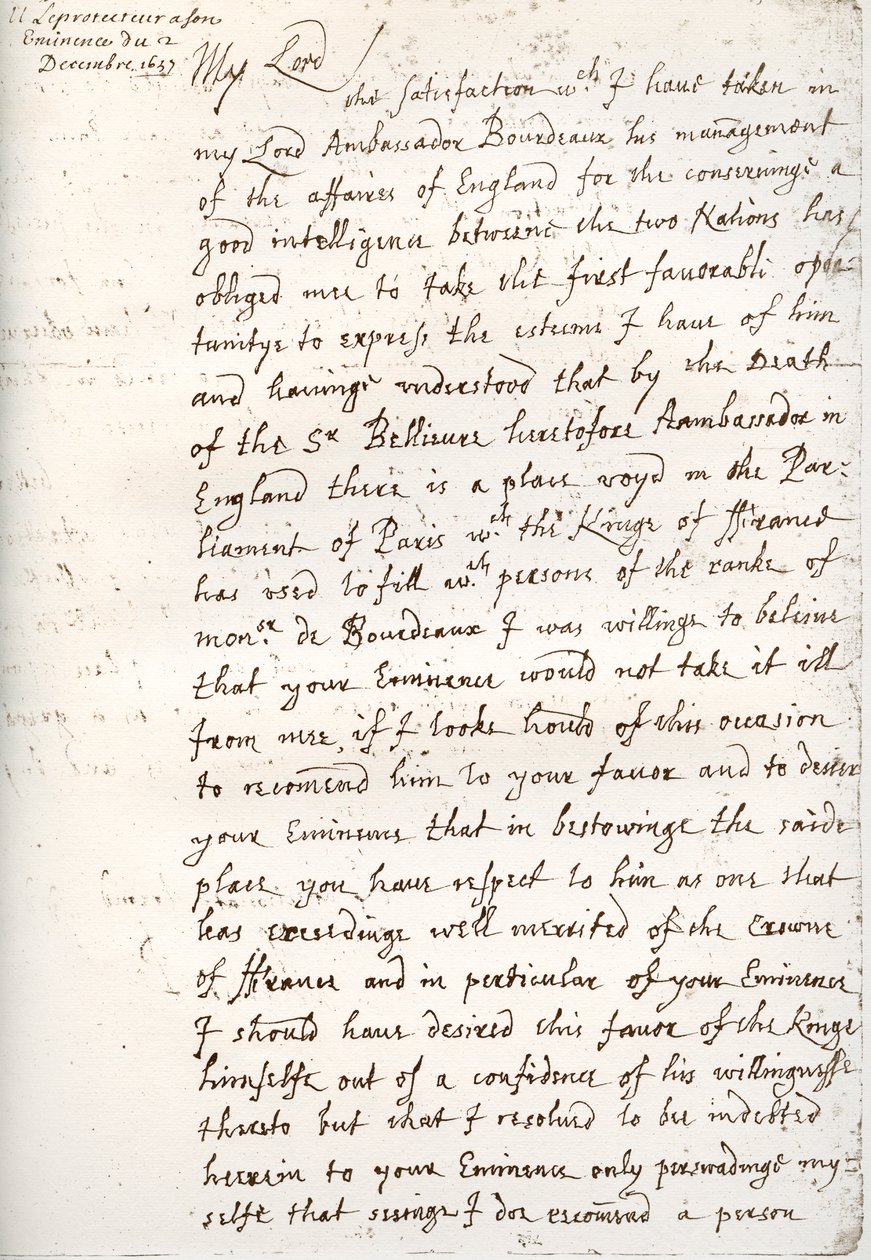 Le protecteur a son
Eminence du 2
Decembre 1657
My Lord
the satisfaction wch I have taken in
my Lord Ambassador Bourdeaux his mañagement
of the affaires of England for the conservinge a
good intelligence betweene the two Nations has
obliged mee to take the first favorable opor-
tunitye to express the esteeme I have of him
and havinge vnderstood that by the Death
of the Sr Bellieure heretofore Aambassador in
England there is a place voyd in the Par:
liament of Paris wch the Kinge of ffrance
has vsed to fill wth persons of the ranke of
monsr de Bourdeaux I was willinge to beleive
that your Eminence would not take it ill
from mee, if I looke hould of this occasion
to recom̃end him to your favor and to desier
your Eminence that in bestowinge the saide
place you have respect to him as one that
has exceedinge well merrited of the Crowne
of ffrance and in perticular of your Eminence
I should have desired this favor of the Kinge
himselfe out of a confidence of his willingnesse
thereto but that I resolved to bee indebted
heerein to your Eminence only perswadinge my=
selfe that seeinge I doe recom̃end a person